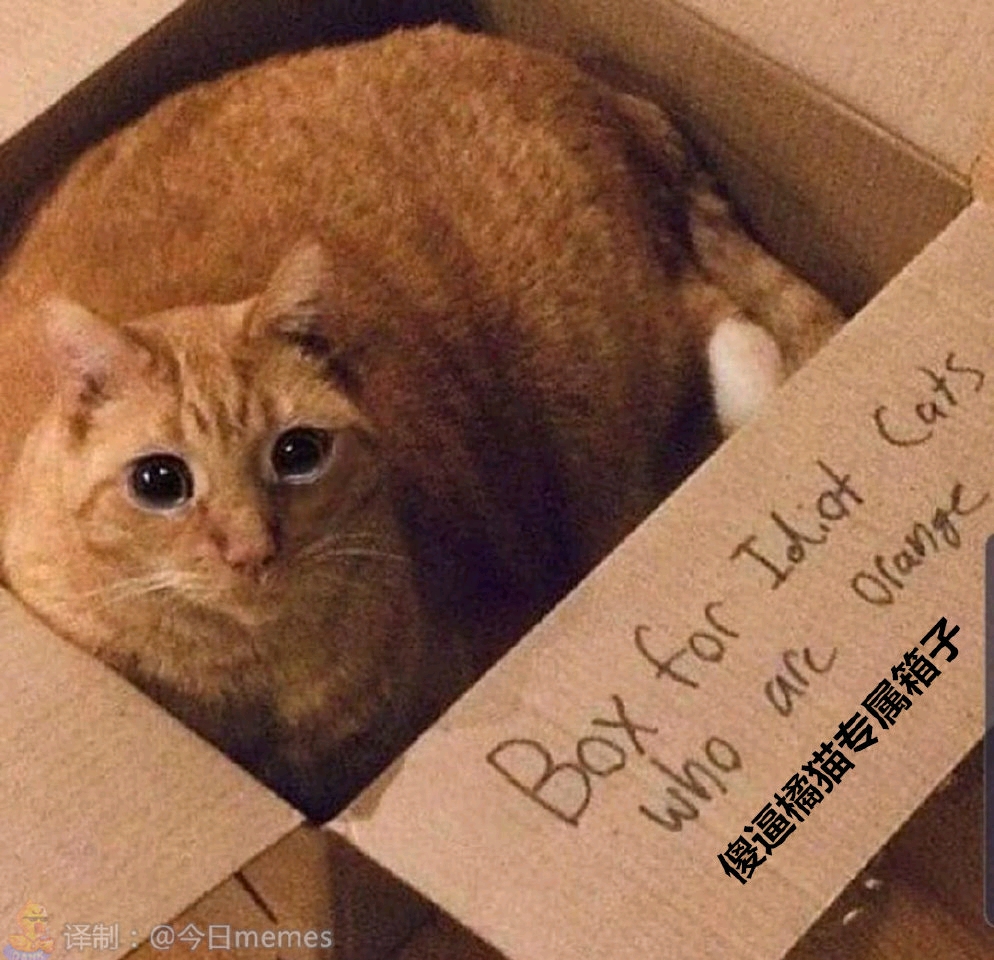 Box for Idiot Cats
who are orange
傻逼橘猫专属箱子
译制：@今日memes